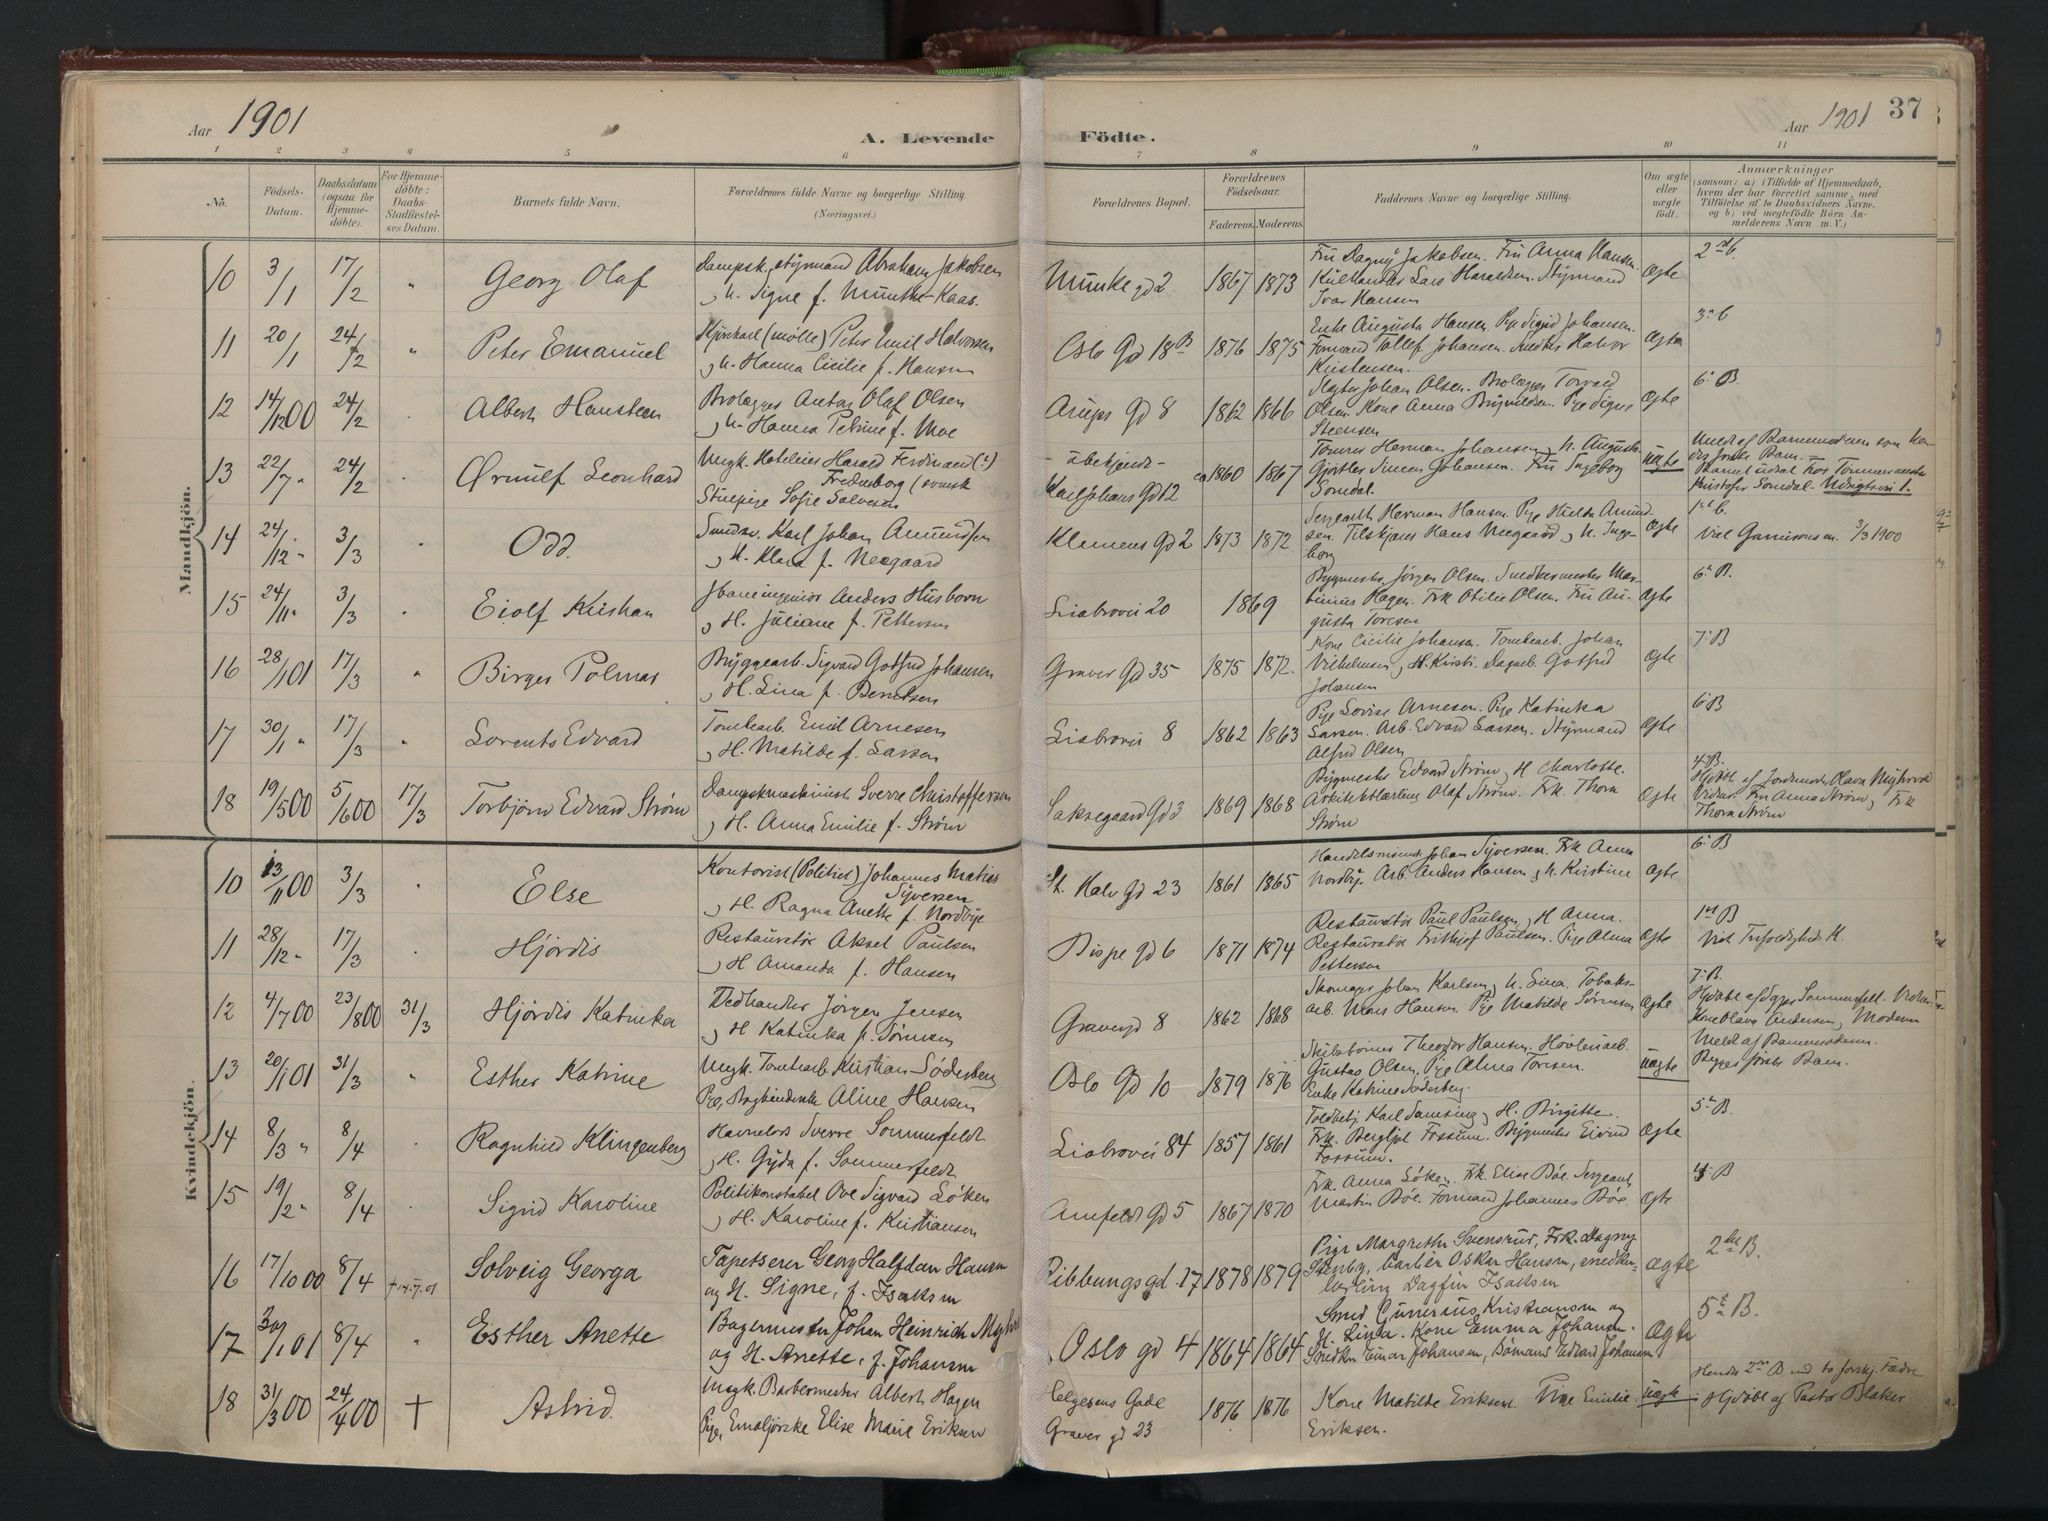 Aar 1901
A. Levende Födte.
Aar 1901 37
1 2 3 4 5 6 7 8 9 10 11
No.
Födsels-Datum.
Daabsdatum (ogsaa for Hjemmedöbte).
For Hjemmedöbte: Daabs-Stadfæstelses Datum.
Barnets fulde Navn.
Forældrenes fulde Navne og borgerlige Stilling. (Næringsvei.)
Forældrenes Bopæl.
Forældrenes Födselsaar.
Faderens. Moderens.
Faddernes Navne og borgerlige Stilling.
Om ægte eller uægte födt.
Anmærkninger
(saasom: a) i Tilfælde af Hjemmedaab, hvem der har forrettet samme, med Tilföielse af to Daabsvidners Navne. og b) ved uægtefödte Börn Anmelderens Navn m. V.)
Mandkjön.
10 3/1 17/2 " Georg Olaf
Dampsk. styrmand Abraham Jakobsen
H. Signe f. Munthe-Kaas.
Munke gd 2 1867 1873
Fru Dagny Jakobsen. Fru Anna Hansen.
Kulhandler Lars Haraldsen. Styrmand
Ivar Hansen
ægte
11 20/1 24/2 " Peter Emanuel
(mölle) Peter Emil Halvorsen
H. Hanna Cicilie f. Hansen
Oslo Gd 18B 1876 1875
Enke Augusta Hansen. Pige Sigrid Johansen.
Formand Tollef Johansen. Smed Halvor
Kristensen.
ægte
12 14/12 00 24/2 Albert Hansteen
Brolægger Anton Olaf Olsen
H. Hanna Petrine f. Moe
Arups Gd 8 1862 1866
Johan Olsen. Brolægger Torvald
Olsen. Kone Anna Brynildsen. Pige Signe
Steensen
ægte 6. B.
13 22/7 " 24/2 Ørnulf Leonhard
Ungk. Hoteleier Harald Ferdinand (?)
Frederborg (svensk
Stuepige Sofie Salvesen
- ubekjendt -
Karl Johans Gd 12 ca 1860 1867
Tømrer Herman Johansen, H. Augusta.
Gjørtler Simen Johansen. Fru Ingeborg
Somdal.
uægte
Meldt af Barnemoderen som
første Barn.
Barnet udsat hos Tømmermester
Kristofer Somdal. Udsigtsvei 1.
14 24/12 " 3/3 Odd.
Karl Johan Amundsen
H. Klara f. Neegaard
Klemens Gd 2 1873 1872
Sergeant Herman Hansen. Pige Hulda Amundsen.
Tilskjærer Hans Neegaard, H. Ingeborg
ægte
Viel Garnisons m. 3/3 1900
15 24/11 " 3/3 Eiolf Kristian
ingeniør Anders Husborn
H. Juliane f. Pettersen
Liabrovei 20 1869
Bygmester Jörgen Olsen. Snedkermester Martinius
Hagen. Frk Otilie Olsen. Fru Augusta
Toresen
ægte 6. B.
16 28/1 01 17/3 " Birger Polmar
Bryggearb. Sigvard Gotfred Johansen
H. Lina f. Berntsen
Graver Gd 35 1875 1872.
Kone Cicilie Johansen. Tomtearb. Johan
Vilhelmsen, H. Kirsti. Dagarb. Gotfred
Johansen
ægte 7. B
17 30/1 " 17/3 " Lorents Edvard
Tomtearb. Emil Arnesen
H. Matilde f. Larsen
Liabrovei 8 1862 1863
Pige Lovise Arnesen. Pige Katinka
Larsen. Arb. Edvard Larsen. Styrmand
Alfred Olsen
ægte 6 B
18 19/5 00 5/6 00 17/3 Torbjørn Edvard Strøm
Dampskmaskinist Sverre Christoffersen
H. Anna Emilie f. Strøm
Saksegaard Gd 3 1869 1868
Bygmester Edvard Strøm, H Charlotte.
Arkitektlærling Olaf Strøm. Frk. Thora
Strøm
ægte
4. B.
Hjdøbt af Jordemoder Olava
Vidner. Fru Anna Strøm, Frk
Thora Strøm
Kvindekjön.
10 13/11 00 3/3 Else
Kontorist (Politiet) Johannes Matias
Syversen
H. Ragna Anette f. Nordbye
St. Halv Gd 23 1861 1865
Handelsmand Johan Syversen. Frk Anna
Nordbye. Arb. Anders Hansen, H. Kristine
ægte 6. B
11 28/12 " 17/3 Hjördis
Restauratör Aksel Paulsen
H Amanda f. Hansen
Bispe gd 6 1871 1874
Restauratör Paul Paulsen, H Anna.
Restauratör Frithjof Paulsen. Pige Alma
Petterson
ægte
1st B
Viet Trefoldigheds K.
12 4/7 00 23/8 00 31/3 Hjördis Katinka
Vedhandler Jörgen Jensen
H Katinka f. Sörensen
Graver gd 8 1862 1868
Skomager Johan Karlsen, H. Lina. Tobaks-
arb. Hans Hansen. Pige Matilde Sörensen
ægte
7. B.
Hjdøbt af Sommerfelt.
Kone Olava Andersen, Moderen
13 20/1 01 31/3 " Esther Katrine
Ungk. Tomtearb Kristian Söderberg
Pige, Bogbinderske Aline Hansen
Oslo Gd 10 1879 1876
Theodor Hansen. Hövleriarb.
Gustav Olsen, Pige Alma Toresen.
Enke Katrine Söderberg.
uægte
Meldt af Barnemoderen.
Beges første Barn.
14 8/3 " 8/4 Ragnhild Klingenberg
Sverre Sommerfeldt
H. Gyda f. Sommerfeldt
Liabrovei 84 1857 1861
Toldbetj Karl Samsing, H. Birgitte.
Frk. Bergljot Fossum. Bygmester Eivind
Fossum.
ægte 5. B.
15 19/2 " 8/4 Sigrid Karoline
Politikonstabel Ove Sigvard Löken
H. Karoline f. Kristiansen
Amfeldt gd 5 1867 1870
Frk. Anna Löken. Frk. Elise Böe. Sergeant
Martin Böe. Formand Johannes Böe.
ægte 4. B
16 17/10 00 8/4 Solveig Georga
Tapetserer Georg Halfdan Hansen
og H. Signe, f. Isaksen
Ribbungsgd. 17 1878 1879
Pige Margrethe Svensrud, Frk. Dagny
Stenby, barber Oskar Hansen, snedker-
lærling Dagfin Isaksen
ægte 2den B.
17 30/1 01 8/4 " Esther Anette
Bagermester Johan Heinrich Myhre
og H. Anette, f. Johansen
Oslo gd 4 1864 1864
Smed Gunerius Kristiansen og
H. Lina. Kone Emma Johansen.
Snedker Einar Johansen, Sømand Edvard Johansen
ægte 5te B.
18 31/3 00 24/4 00 † Astrid.
Ungk. Barbermester Albert Hagen
Pige, Emaljørske Elise Marie Eriksen
Helgesens Gade
Graver gd 23 1876 1876
Kone Matilde Eriksen. Pige Emilie
Eriksen.
uægte
Hendes 2det B med to forskj. Fædre
Hjdøbt af Pastor Blaker